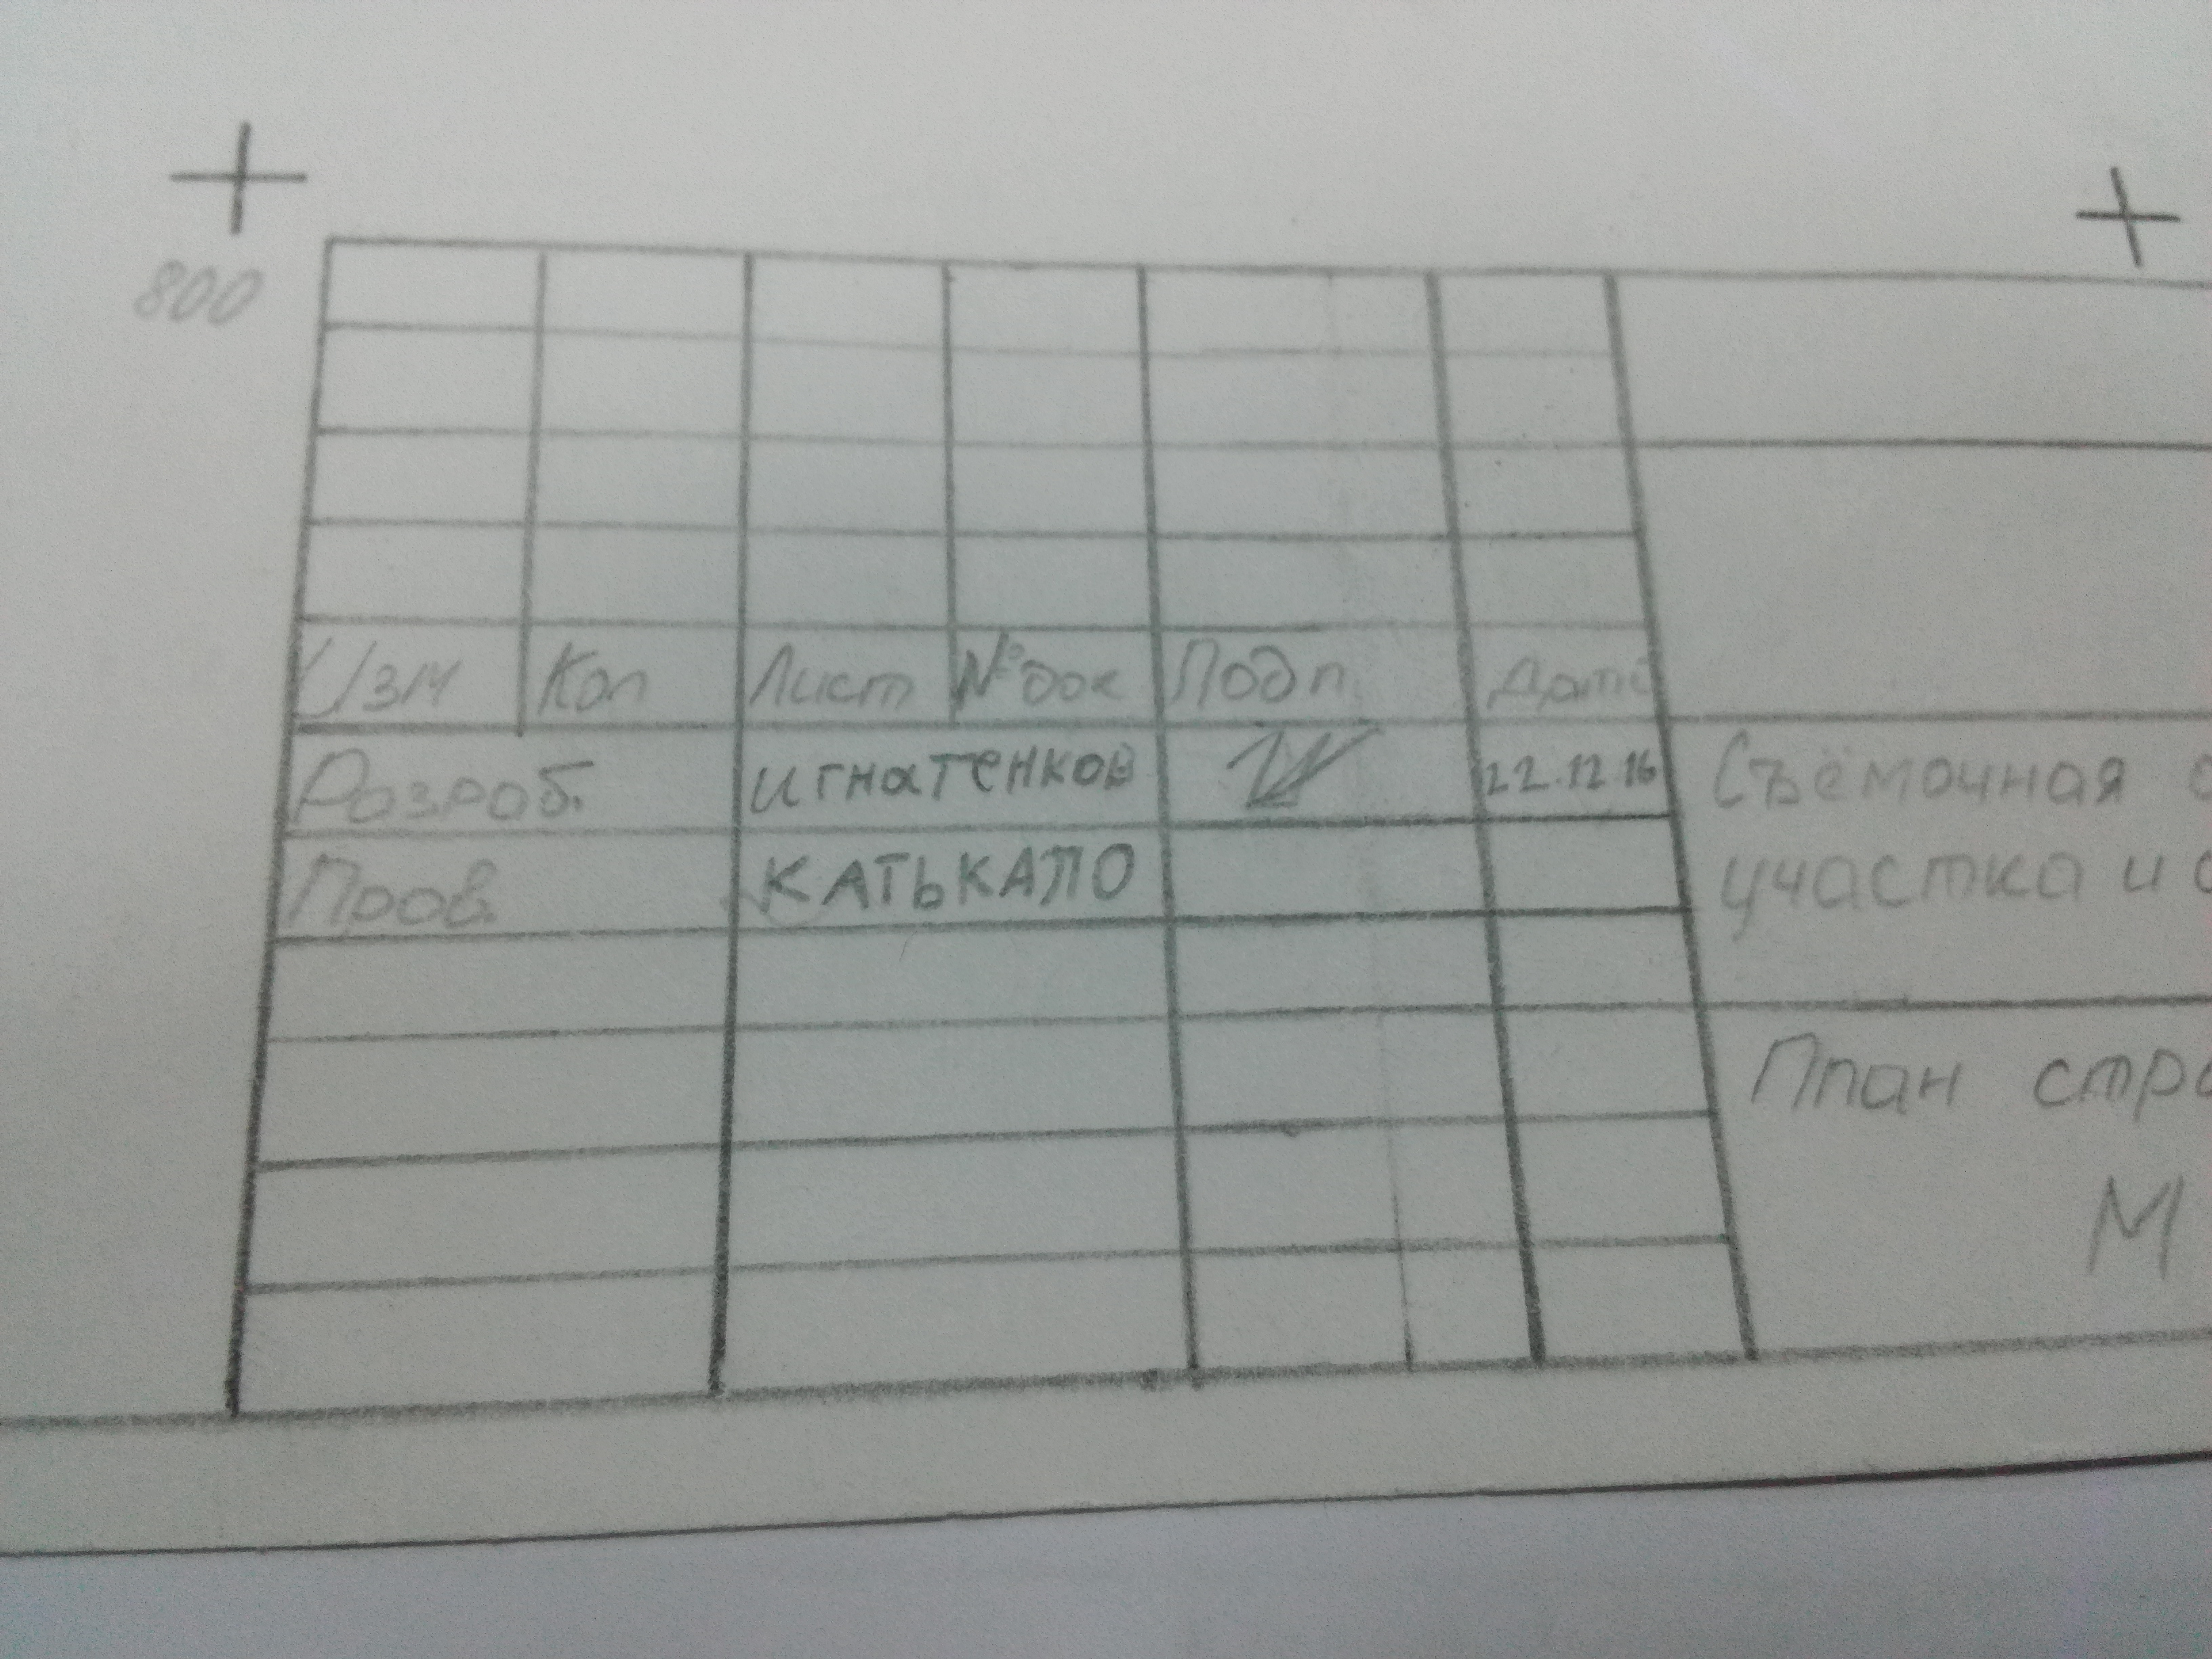 800
Изм Кол Лист №док Подп. Дата
Розроб. Игнатенков 22.12.16
Пров. КАТЬКАЛО
Съёмочная
участка и
План
М